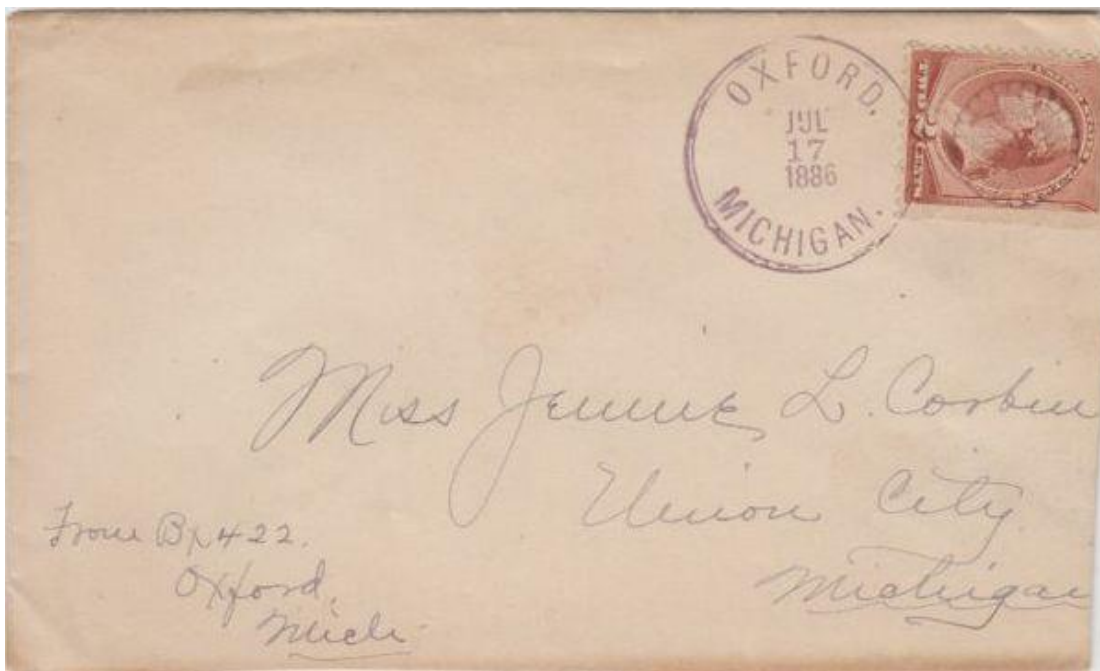 OXFORD.
JUL
17
1886
MICHIGAN.
Miss Jennie L. Corbin
Union City
Michigan
From Bx 422.
Oxford,
Mich.